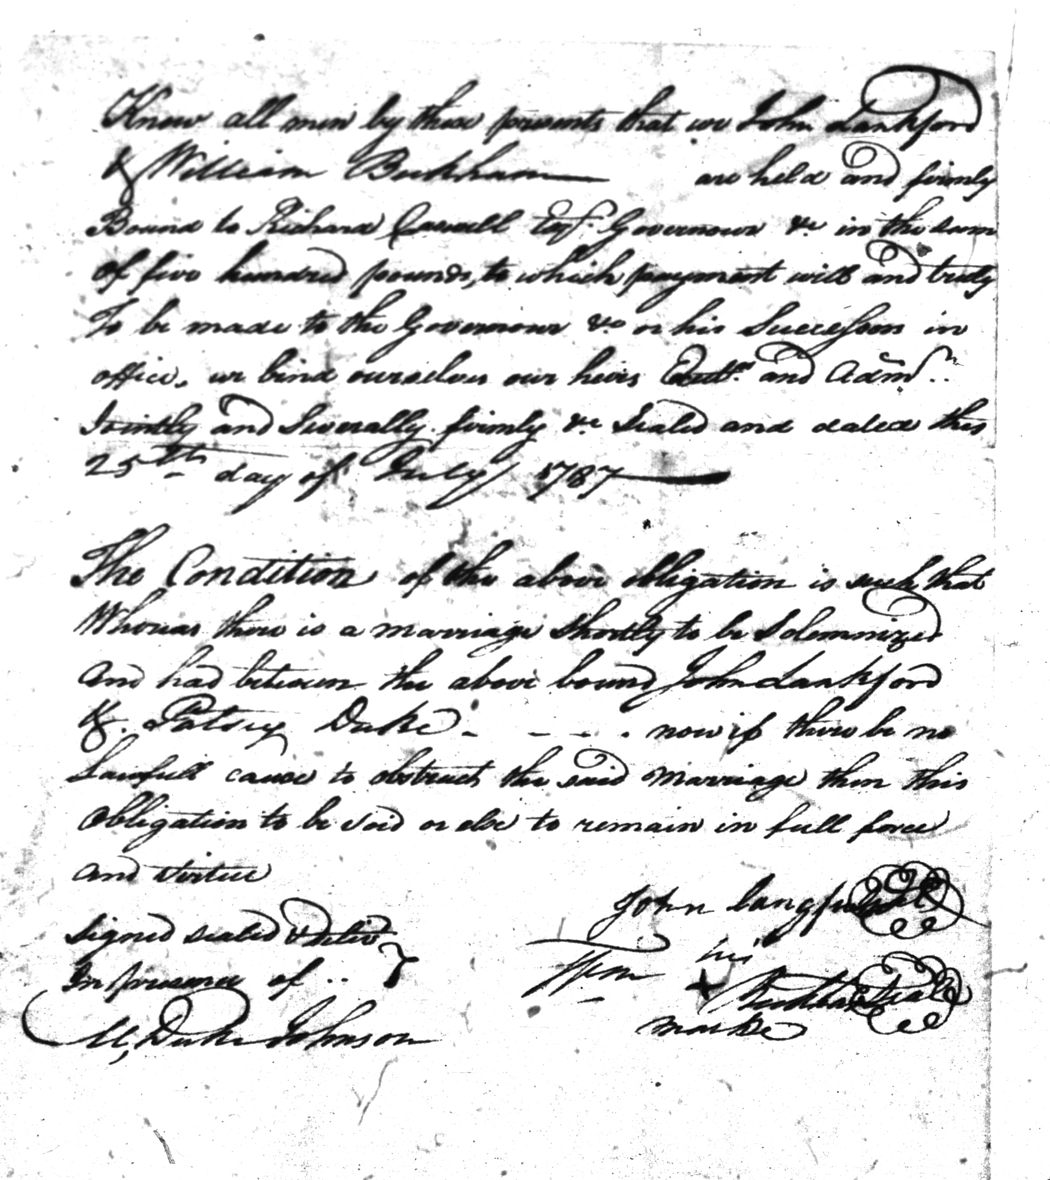 Know all men by these presents that we John Lankford
& William Buckham are held and firmly
Bound to Richard Caswell Esqr. Governour &c in the sum
of five hundred pounds, to which payment will and truly
To be made to the Governour &c or his Successors in
office. we bind ourselves our heirs Exectrs. and Admrs..
Jointly and Severally. firmly &c Sealed and dated this
25th day of July 1787
The Condition of the above obligation is such that
Whereas there is a marriage Shortly to be Solemnized
and had between the above bound John Lankford
&. Patsey Duke. - - - . now if there be no
Lawfull cause to obstruct the said marriage then this
obligation to be void or else to remain in full force
and virtue
Signed sealed & delivd
In presence of ..
John Langford Seal
Wm his
X Buckham Seal
marke
M, Duke Johnson